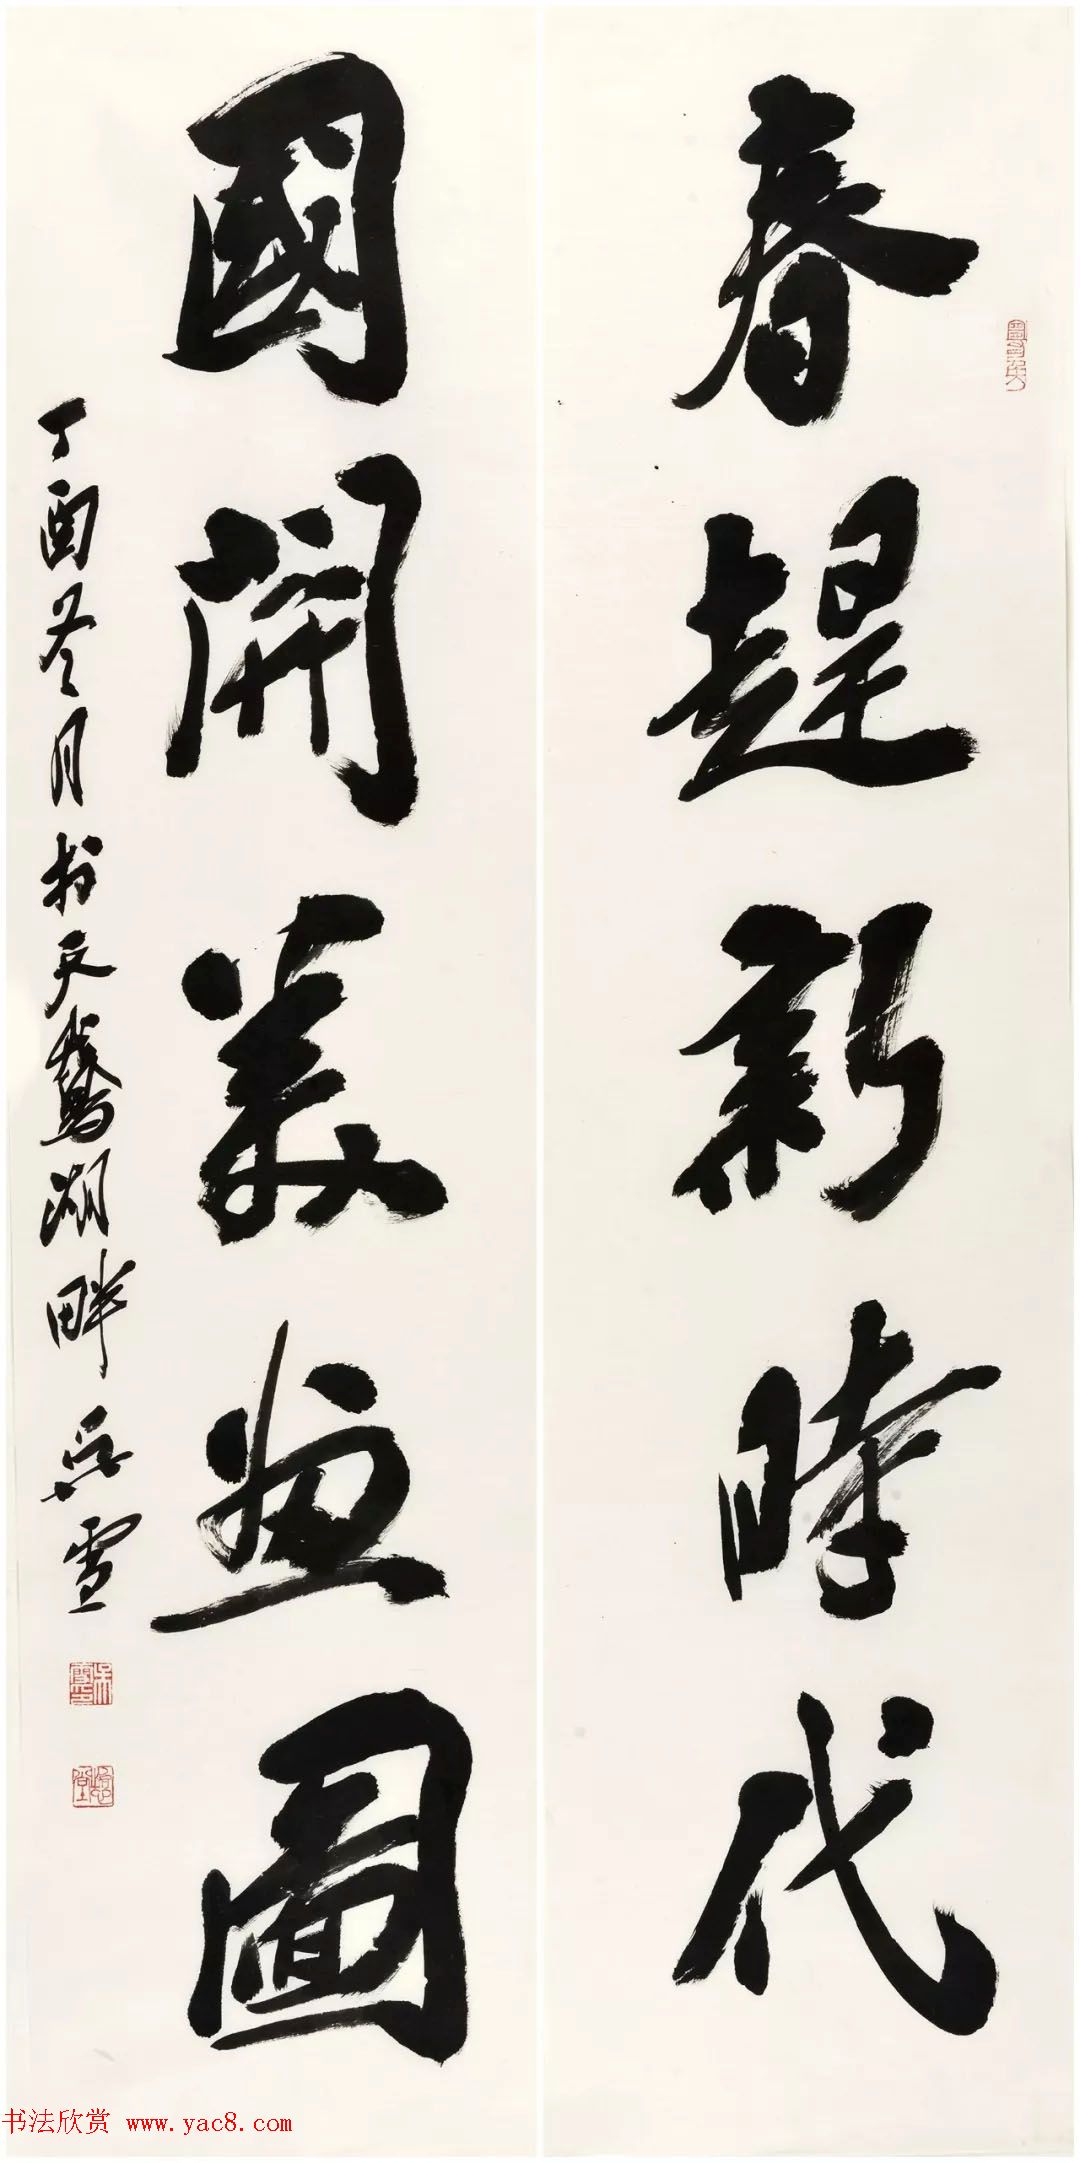 春趕新時代
國開美畫圖
丁酉冬月於天鵞湖畔吴雪
书法欣赏 www.yac8.com